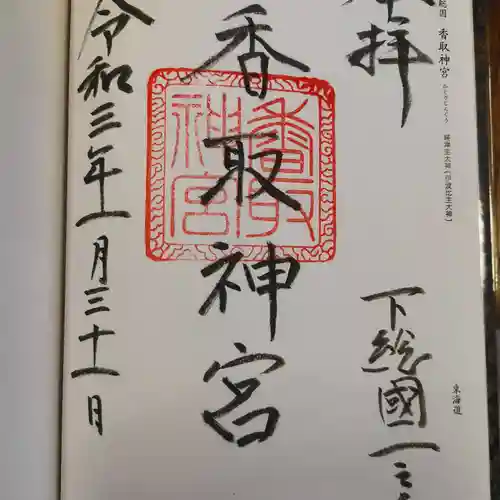 総国 香取神宮 かとりじんぐう 経津主大神〔伊波比主大神〕
東海道
拝
下総國一之
香取神宮
香取神宮
令和三年一月三十一日